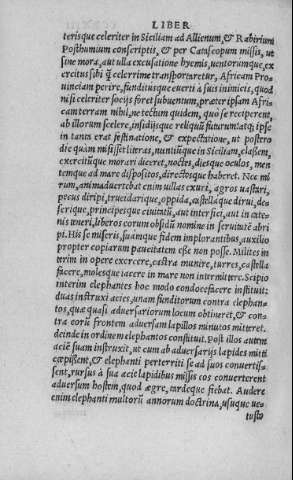 LIBER
terisque celeriter in Siciliam ad Allienum, & Rabirium
Posthumium conscriptis, & per Catascopum missis, ut
sine mora, aut ulla excusatione hyemis, uentorumque, ex
ercitus sibi q̃ celerrime transportaretur, Africam Pro
uinciam perire, funditusque euerti à suis inimicis, quod
nisi celeriter socijs foret subuentum, præter ipsam Afri
cam terram nihil, ne tectum quidem, quò se reciperent,
ab illorum scelere, insidijsque reliquũ futurum: atq; ipse
in tanta erat festinatione, & expectatione, ut postero
die quàm misisset literas, nuntiũque in Siciliam, classem,
exercitũque morari diceret, noctes, diesque oculos, men
temque ad mare dispositos, directosque haberet. Nec mi
rum, animaduertebat enim uillas exuri, agros uastari,
pecus diripi, trucidarique, oppida, castellaque dirui, de=
serique, principesque ciuitatũ, aut interfici, aut in cate=
nis teneri, liberos eorum obsidũ nomine in seruitutẽ abri
pi. His se miseris, suamque fidem implorantibus, auxilio
propter copiarum paucitatem esse non posse. Milites in
terim in opere exercere, castra munire, turres, castella
facere, molesque iacere in mare non intermittere. Scipio
interim elephantes hoc modo condocefacere instituit:
duas instruxi acies, unam funditorum contra elephan=
tos, quæ quasi aduersariorum locum obtineret, & con=
tra eorũ frontem aduersam lapillos minutos mitteret.
deinde in ordinem elephantos constituit. Post illos autem
aciẽ suam instruxit, ut cum ab aduersarijs lapides mitti
cœpissent, & elephanti perterriti se ad suos conuertis=
sent, rursus à sua acie lapidibus missis eos conuerterent
aduersum hostem, quod ægre, tardeque fiebat. Audere
enim elephanti multorũ annorum doctrina, usuque ue=
tusto